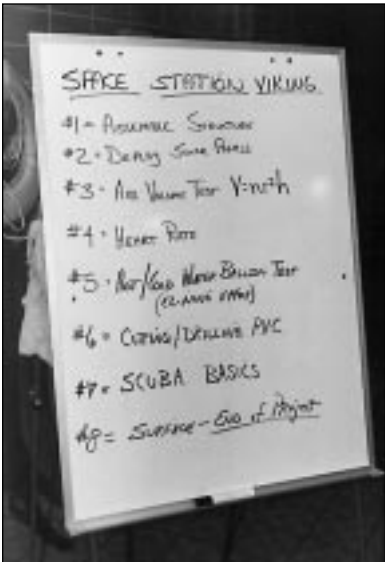 SPACE STATION VIKING
#1 = ASSEMBLE STRUCTURE
#2 = DEPLOY SOLAR PANELS
#3 - VOLUME TEST V=πr²h
#4 = HEART RATE
#5 - HOT/COLD WATER BALLOON TEST
#6 = CUTTING/DRILLING PVC
#7 = SCUBA BASICS
#8 = SURFACE - END of Project